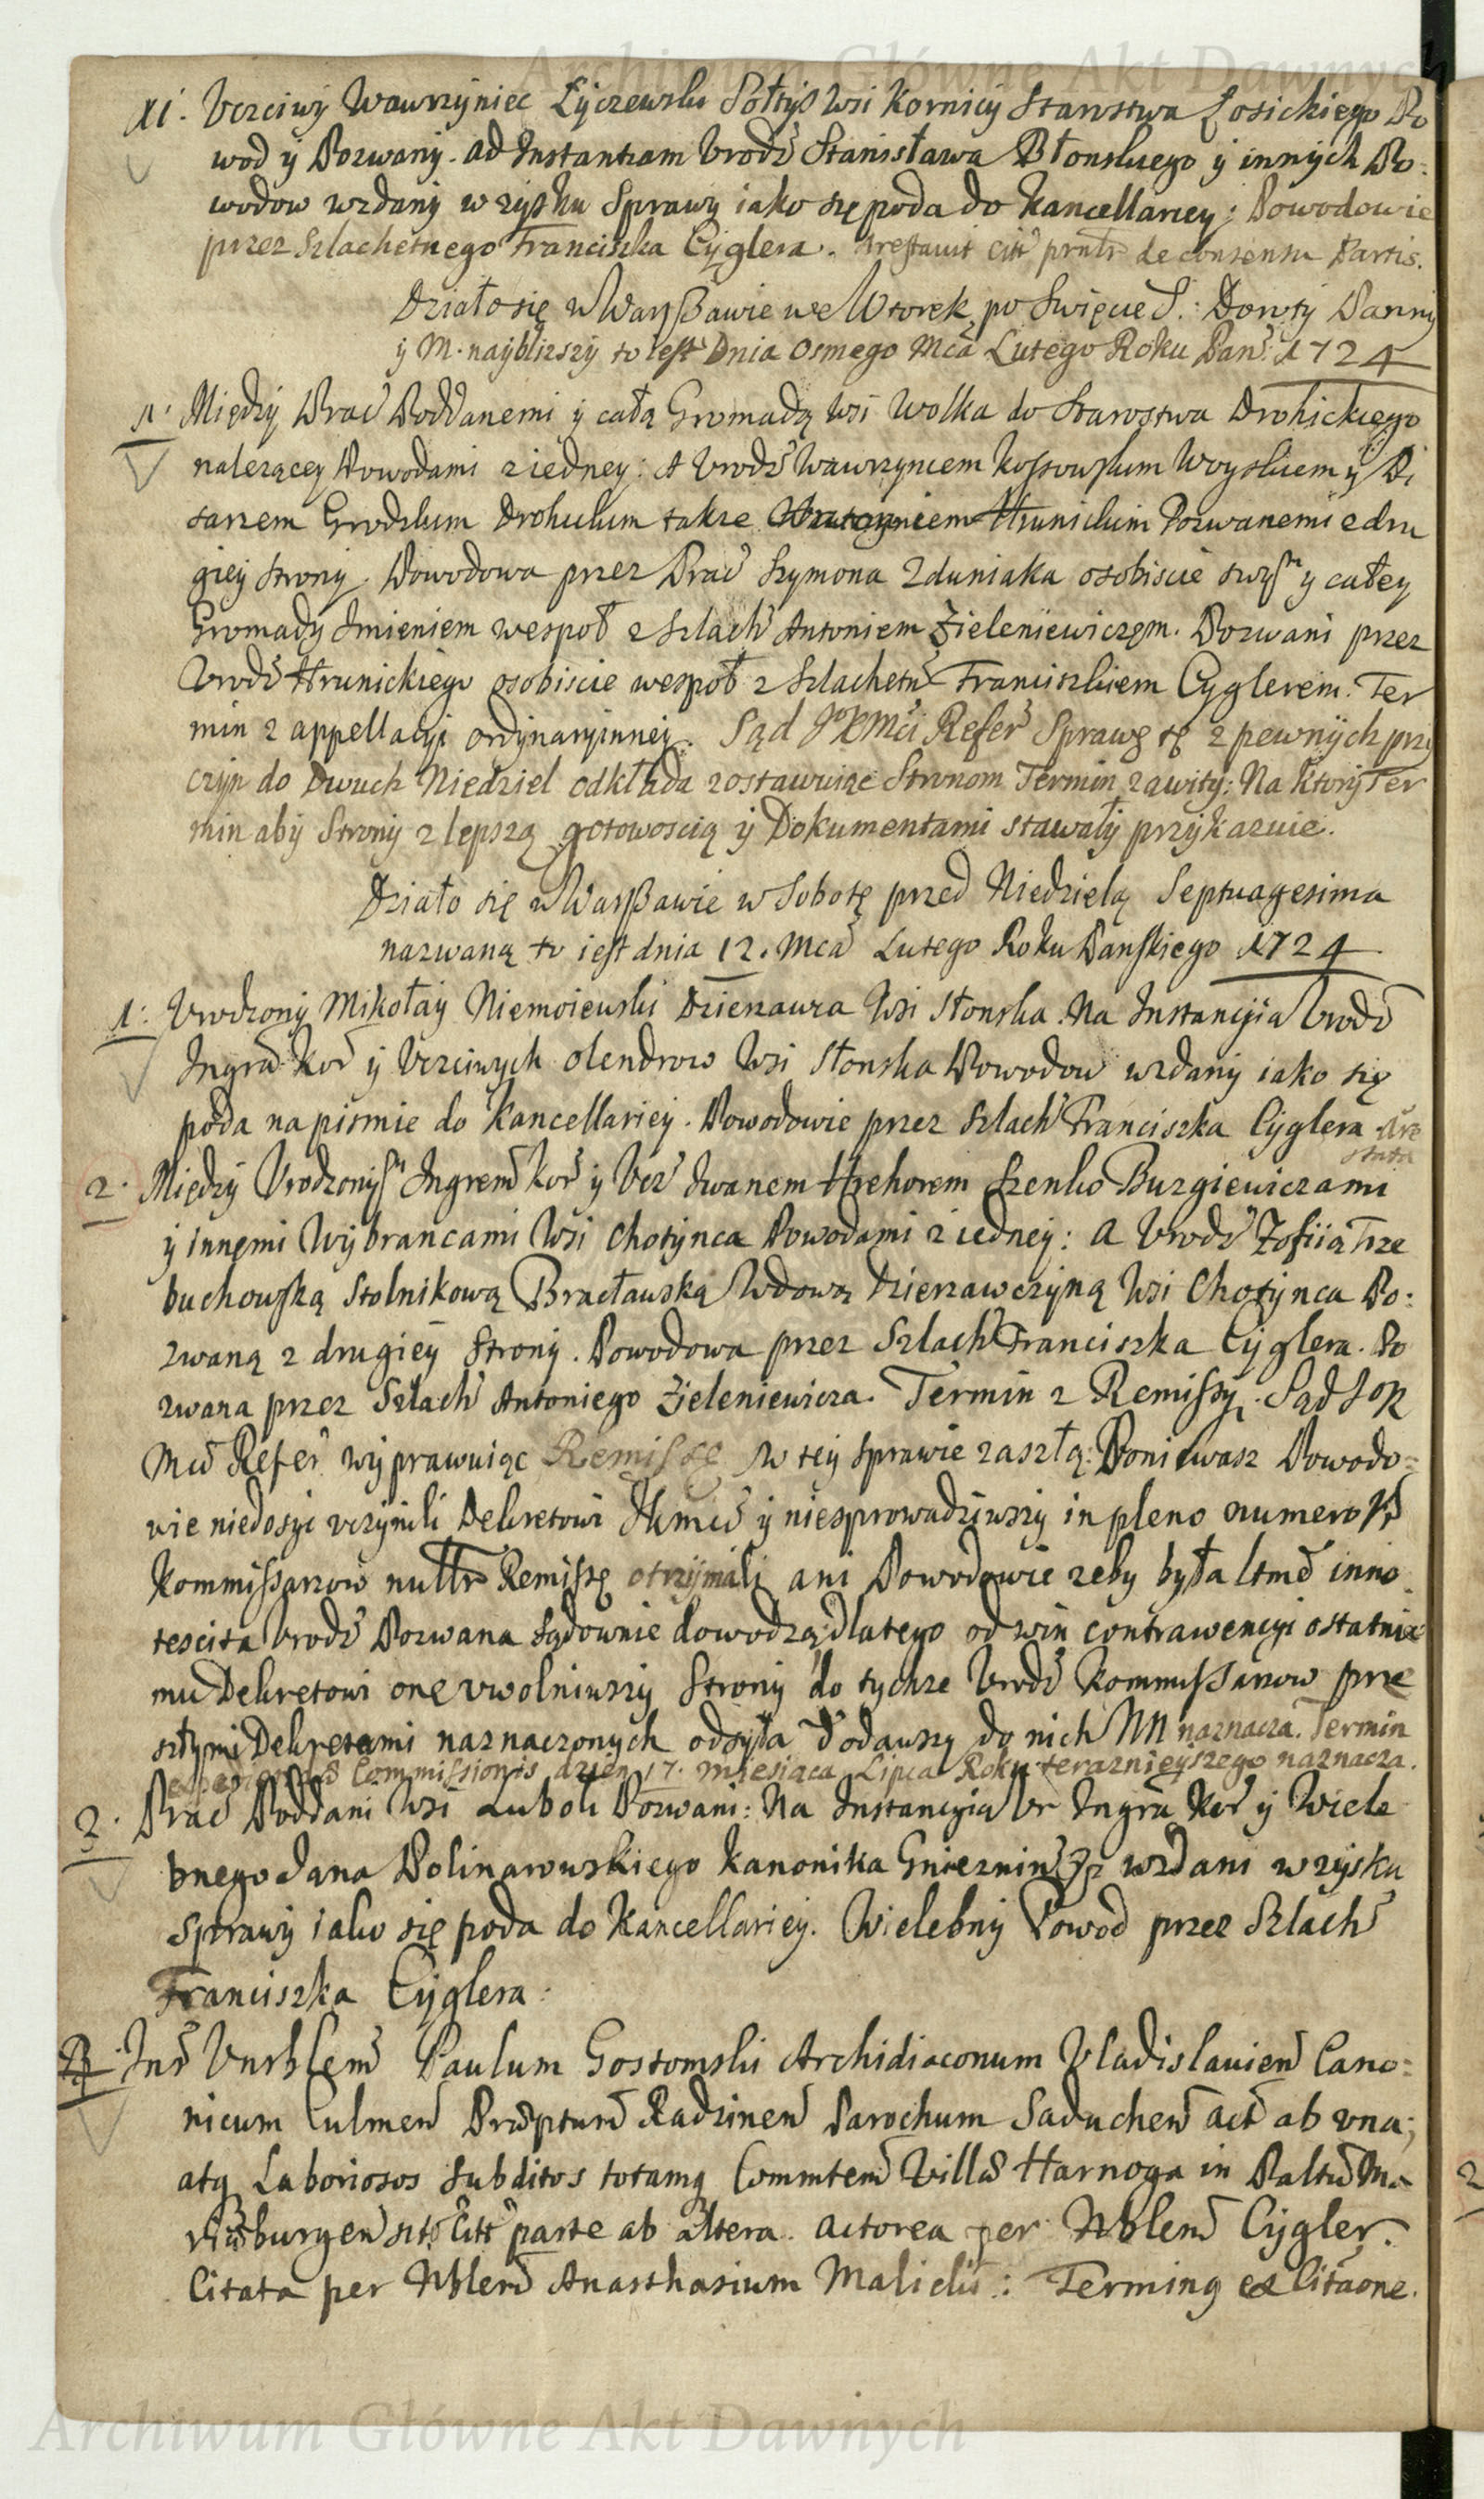 Archiwum Główne Akt Dawnych
XI. Vczciwy Wawrzyniec Łyczewski Sołtys Wsi Kornicy Starostwa Łosickiego Po
wod y Pozwany. ad Instantiam Vrodz Stanisława Błonskiego y innych Po:
wodow wzdany w zysku Sprawy iako się poda do Kancellariey; Powodowie
przez Szlachetnego Franciszka Cyglera. Arestavit Citt de consensu Partis.
Działo się w Warszawie we Wtorek po Swięcie S: Doroty Panny
y M. nayblizszy to iest Dnia Osmego Mca Lutego Roku Pań: 1724
1. Między Prac Poddanemi y całą Gromadą Wsi Wolka do Starostwa Drohickiego
nalezącey Powodami z iedney: A Vrodz Wawrzyncem Kossowskim Woyskiem y Pi
sarzem Grodzkim Drohickim takze Hrunickim Pozwanemi z dru
giey Strony. Powodowa przez Prac Szymona Zduniaka osobiscie swym y całey
Gromady Imieniem wespoł z Szlach Antoniem Zieleniewiczem. Pozwani przez
Vrodz Hrunickiego osobiscie wespoł z Szlachetn Franciszkiem Cyglerem. Ter
min z appellacyi ordynaryinney. Sąd JKMci Refer Sprawę tę z pewnych przy
czyn do Dwuch Niedziel odkłada zostawuiąc Stronom Termin zawity: Na ktory Ter
min aby Strony z lepszą gotowoscią y Dokumentami stawały przykazuie.
Działo się w Warszawie w Sobotę przed Niedzielą Septuagesima
nazwaną to iest dnia 12. Mca Lutego Roku Panskiego 1724
1. Vrodzony Mikołay Niemoiewski Dzierzawca Wsi Słonska. Na Instancyią Vrodz
Ingra Kor y Vczciwych Olendrow Wsi Słonska Powodow wzdany iako się
poda na pismie do Kancellariey. Powodowie przez Szlach Franciszka Cyglera Are
stata
2. Między Vrodzonym Ingrem Kor y Vcz Iwanem Hrehorem Szenko Burgiewiczami
y innemi Wybrancami Wsi Chotynca Powodami z iedney: A Vrodz Zofiią Trze
buchowską Stolnikową Bracławską Wdową Dzierzawczyną Wsi Chotynca Po:
zwaną z drugiey Strony. Powodowa przez Szlach Franciszka Cyglera. Po
zwana przez Szlach Antoniego Zieleniewicza. Termin z Remissy. Sąd JoK
Mci Refer wyprawuiąc Remissę w tey sprawie zaszłą: Poniewasz Powodo=
wie niedosyc vczynili Dekretowi JKmci y niesprowadziwszy in pleno numero
Kommissarzow nullr Remissę otrzymali ani Powodowie zeby była ltme inno
tescita Vrodz Pozwana sądownie dowodzą; dlatego od win contrawencyi ostatnie
mu Dekretowi onę vwolniwszy Strony do tychze Vrodz Kommissarzow prze
szłymi Dekretami naznaczonych odsyła dodawszy do nich NN naznacza. Termin
Commissionis dzień 17. miesiąca Lipca Roku terazniejszego naznacza.
3. Prac Poddani Wsi Luboli Pozwani: Na Instancyią Vr Ingra Kor y Wiele
bnego Jana Dolinarowskiego Kanonika Gnieznin wzdani w zysku
sprawy iako się poda do Kancellariey. Wielebny Powod przez Szlach
Franciszka Cyglera:
Int Vnrblem Paulum Gostomski Archidiaconum Vladislavien Cano=
nicum Culmen Præptum Radzinen Parochum Saduchen act ab vna;
atq Laboriosos Subditos totamq Commtem Villæ Harnoga in Paltu Ma
riæburgen sitæ Citt parte ab altera. Actorea per Nblem Cygler.
Citata per Nblem Anasthasium Malicki: Terminq ex Citaone.
2
Archiwum Główne Akt Dawnych